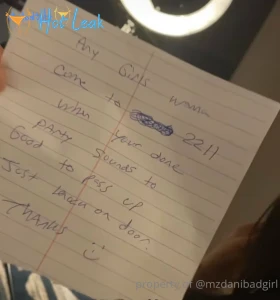 Hot Leak
Hey Girls
Come to 2211
When your done
party sounds to
Good to pass up
Just knock on door.
THANKS :)
property of @mzdanibadgirl